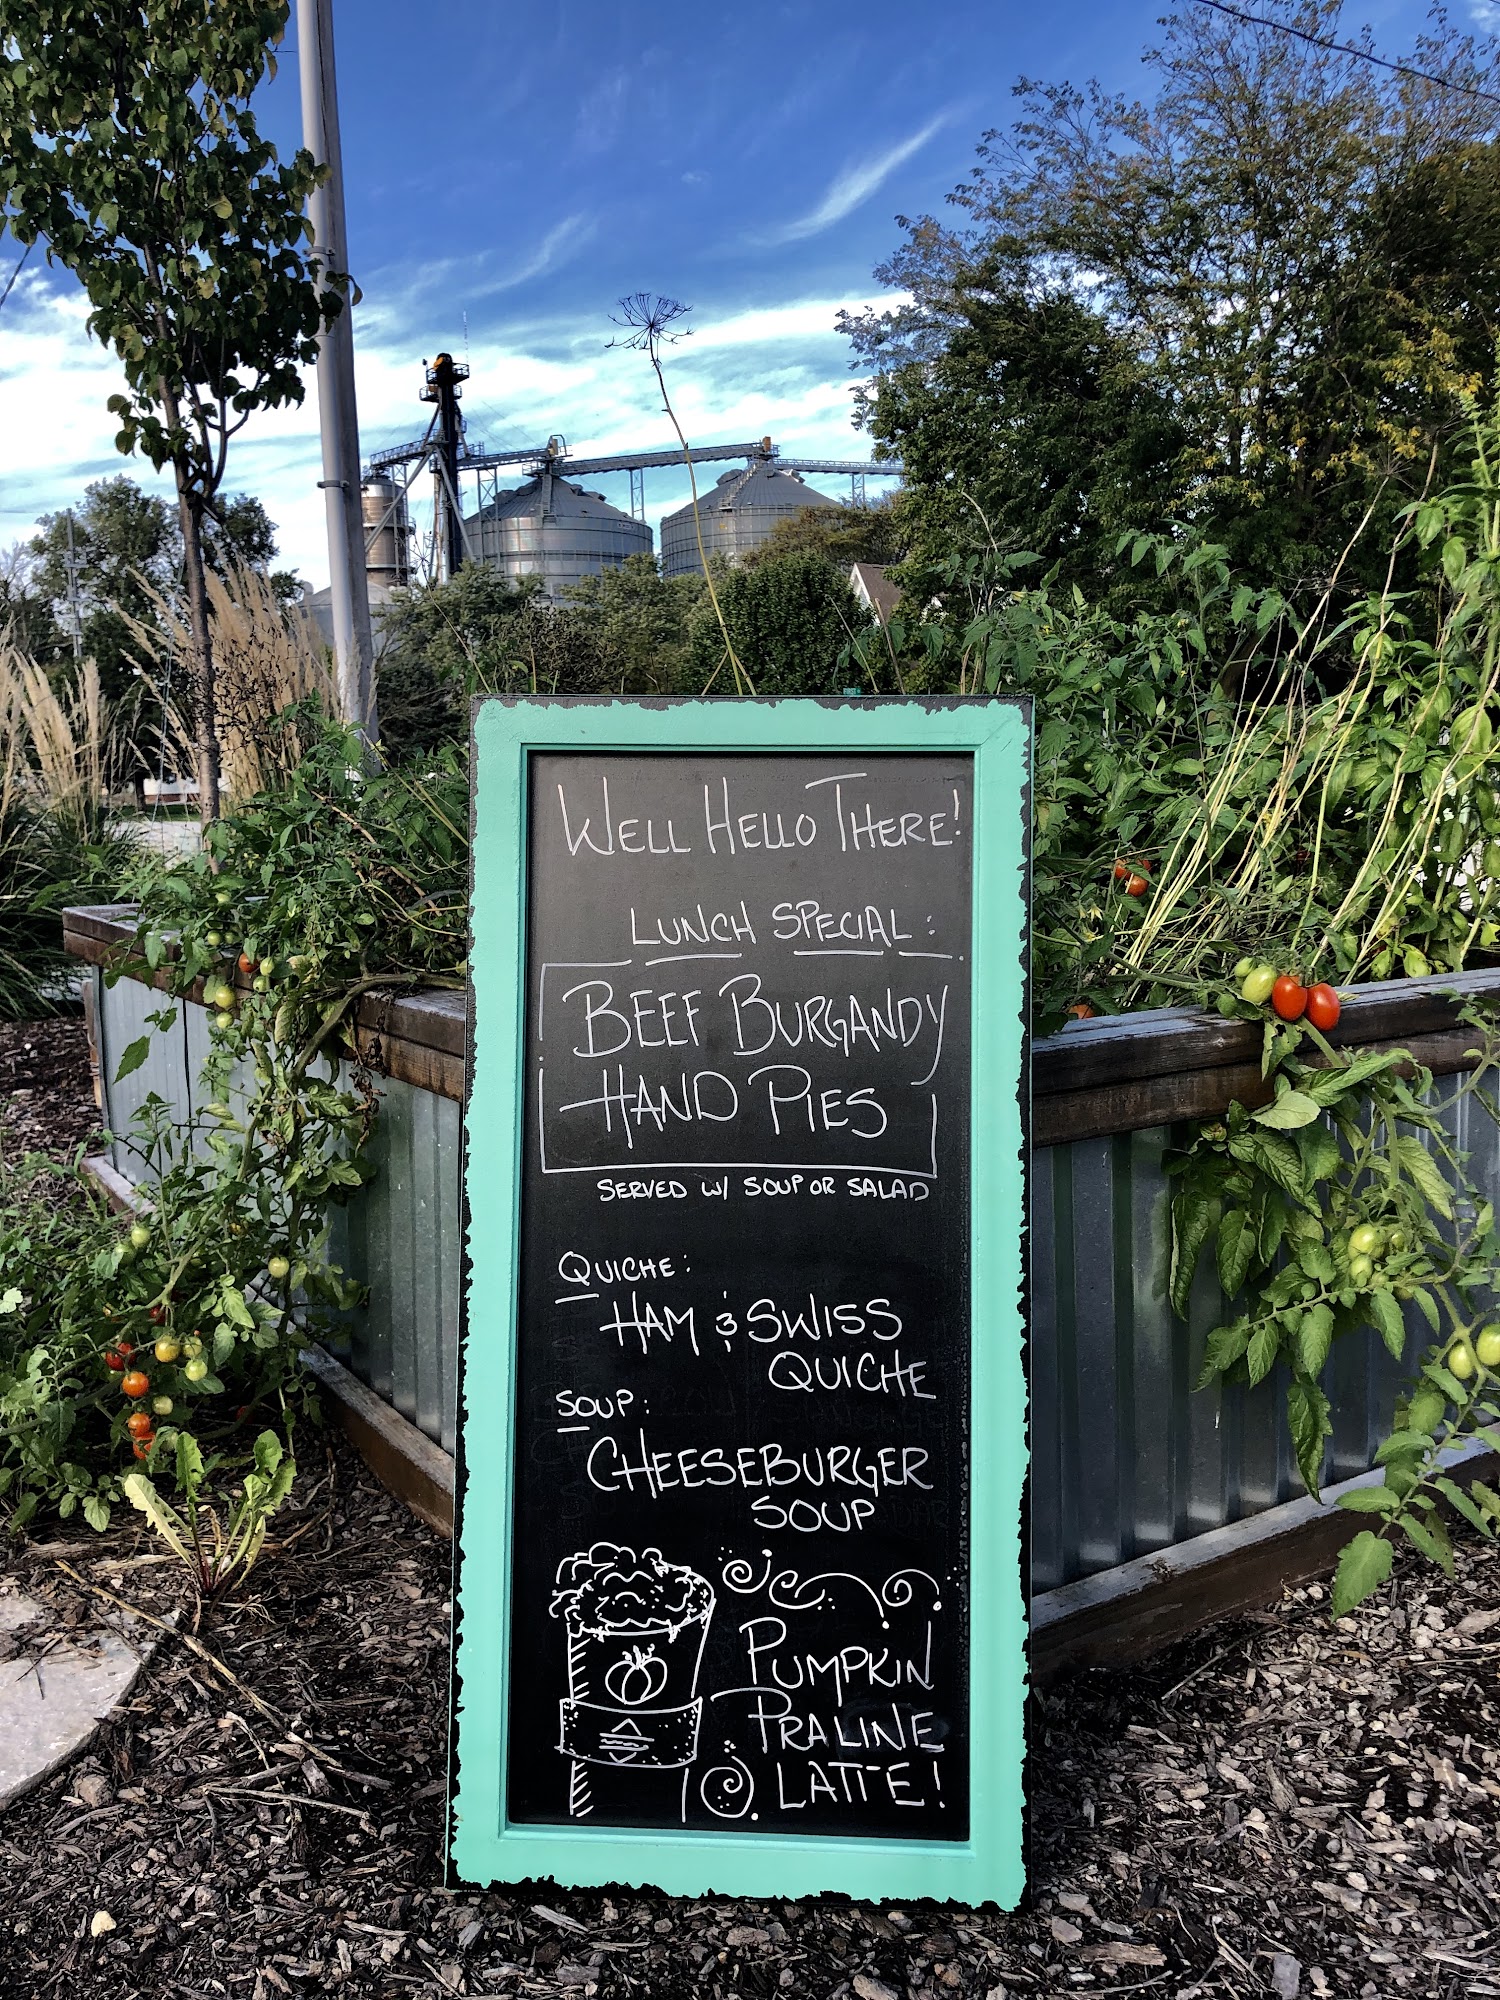 WELL HELLO THERE!
LUNCH SPECIAL:
BEEF BURGANDY
HAND PIES
SERVED W/ SOUP OR SALAD
QUICHE:
HAM & SWISS
QUICHE
SOUP:
CHEESEBURGER
SOUP
PUMPKIN
PRALINE
LATTE!